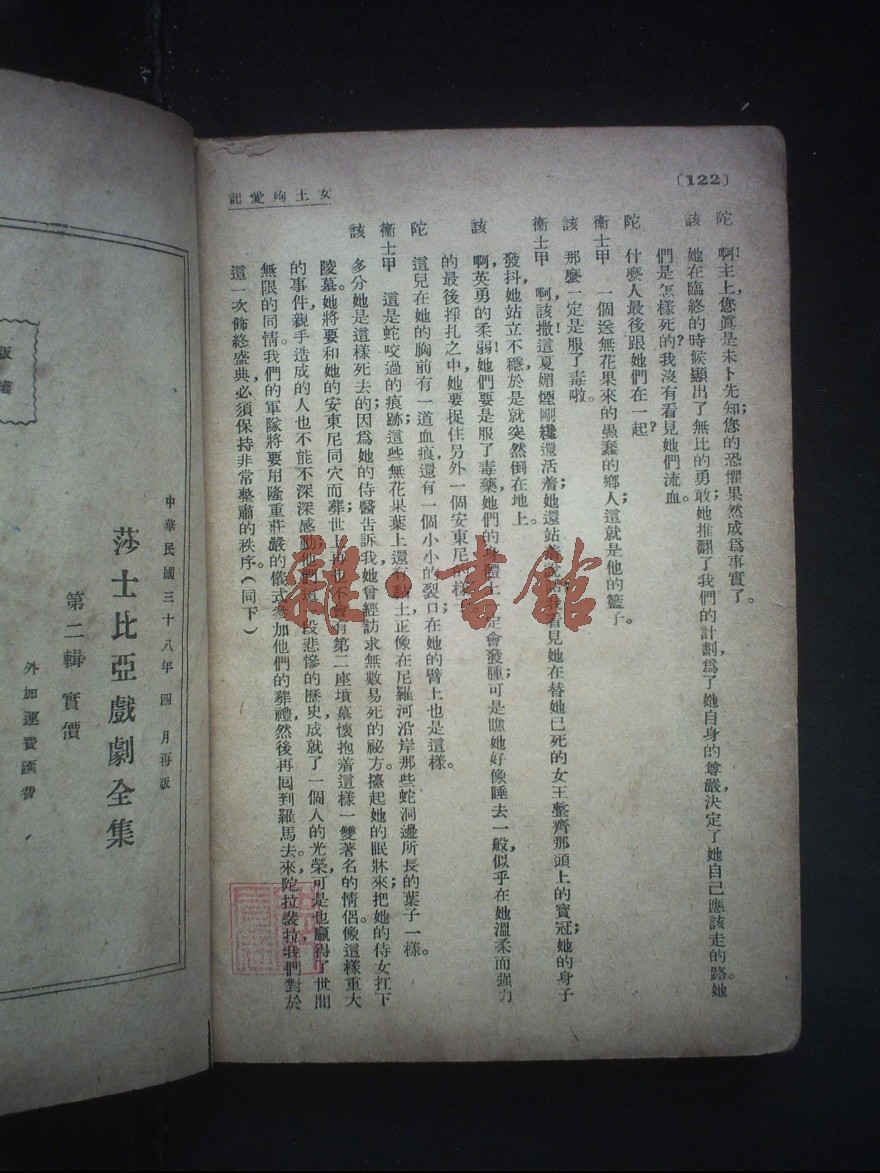 〔122〕
女士殉愛記
陀　啊！主上，您眞是未卜先知；您的恐懼果然成爲事實了。
該　她在臨終的時候顯出了無比的勇敢；她推翻了我們的計劃，爲了她自身的尊嚴，決定了她自己應該走的路。她
們是怎樣死的？我沒有看見她們流血。
陀　什麽人最後跟她們在一起？
衞士甲　一個送無花果來的愚蠢的鄉人；這就是他的籃子。
該　那麽一定是服了毒啦。
衞士甲　啊，該撒！這夏媚煙剛纔還活着；她還站着說話；我看見她在替她已死的女王整齊那頭上的寶冠；她的身子
發抖，她站立不穩，於是就突然倒在地上。
該　啊，英勇的柔弱！她們要是服了毒藥，她們的身體上一定會發腫；可是瞧她好像睡去一般，似乎在她溫柔而强力
的最後掙扎之中，她要捉住另外一個安東尼的樣
陀　這兒在她的胸前有一道血痕，還有一個小小的裂口；在她的臂上也是這樣。
衞士甲　這是蛇咬過的痕跡；這些無花果葉上還有黏土，正像在尼羅河沿岸那些蛇洞邊所長的葉子一樣。
該　多分她是這樣死去的；因爲她的侍醫告訴我，她曾經訪求無數易死的祕方。擡起她的眠牀來；把她的侍女扛下
陵墓。她將要和她的安東尼同穴而葬；世上再也不會有第二座墳墓懷抱着這樣一雙著名的情侶。像這樣重大
的事件，親手造成的人也不能不深深感動；他們這一段悲慘的歷史，成就了一個人的光榮，可是也贏得了世間
無限的同情。我們的軍隊將要用隆重莊嚴的儀式參加他們的葬禮，然後再囘到羅馬去。來，陀拉裴拉，我們對於
這一次飾終盛典，必須保持非常整肅的秩序。（同下）
中華民國三十八年四月再版
莎士比亞戲劇全集
第二輯實價
外加運費匯費
版權
雜·書館